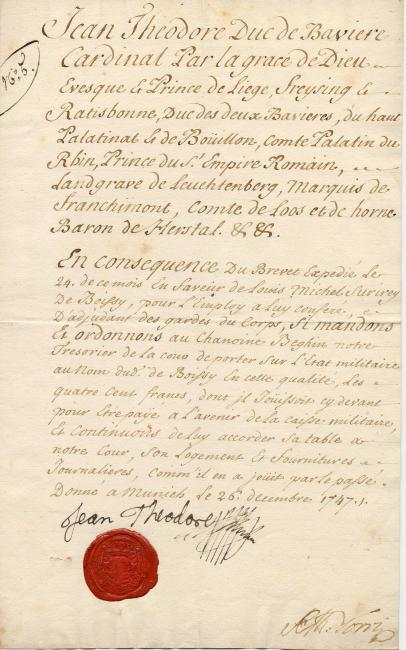 Jean Theodore Duc de Baviere
Cardinal Par la grace de Dieu
Evesque & Prince de Liege, Freysing &
Ratisbonne, Duc des deux Bavieres, du haut
Palatinat & de Boüillon, Comte Palatin du
Rhin, Prince du St. Empire Romain,
Landgrave de Leuchtenberg, Marquis de
Franchimont, Comte de Loos et de horne
Baron de Herstal. &&.
En consequence Du Brevet Expedié Le
24. de ce mois En faveur de Louis Michel Surirey
De Boissy, pour L'Employ a Luy conferé,
D'adjudant des gardes du Corps, Si mandons
Et ordonnons au Chanoine Beghin notre
Tresorier de la cour de porter sur L'Etat militaire
au Nom dud. de Boissy En cette qualité, Les
quatre Cent francs, dont jl Joüissoit cy devant
pour Etre payé a L'avenir de la caisse militaire,
Et Continuons de Luy accorder Sa table a
notre Cour, Son Logement Et fournitures
Journalieres, Comm'il en a joüit par le passé.
Donné a Munich Le 26. decembre 1747.
Jean Theodore